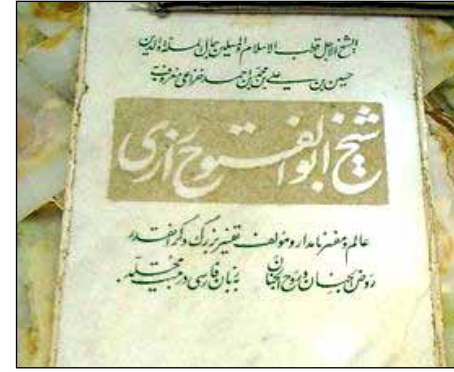 الشیخ الاجل قطب الاسلام والمسلمین جمال الملة والدین
حسین بن علی بن محمد بن احمد خزاعی معروف به
شیخ ابوالفتوح رازی
عالم و مفسر نامدار و مؤلف تفسیر بزرگ و گرانقدر
روض الجنان و روح الجنان به زبان فارسی در بیست مجلد.